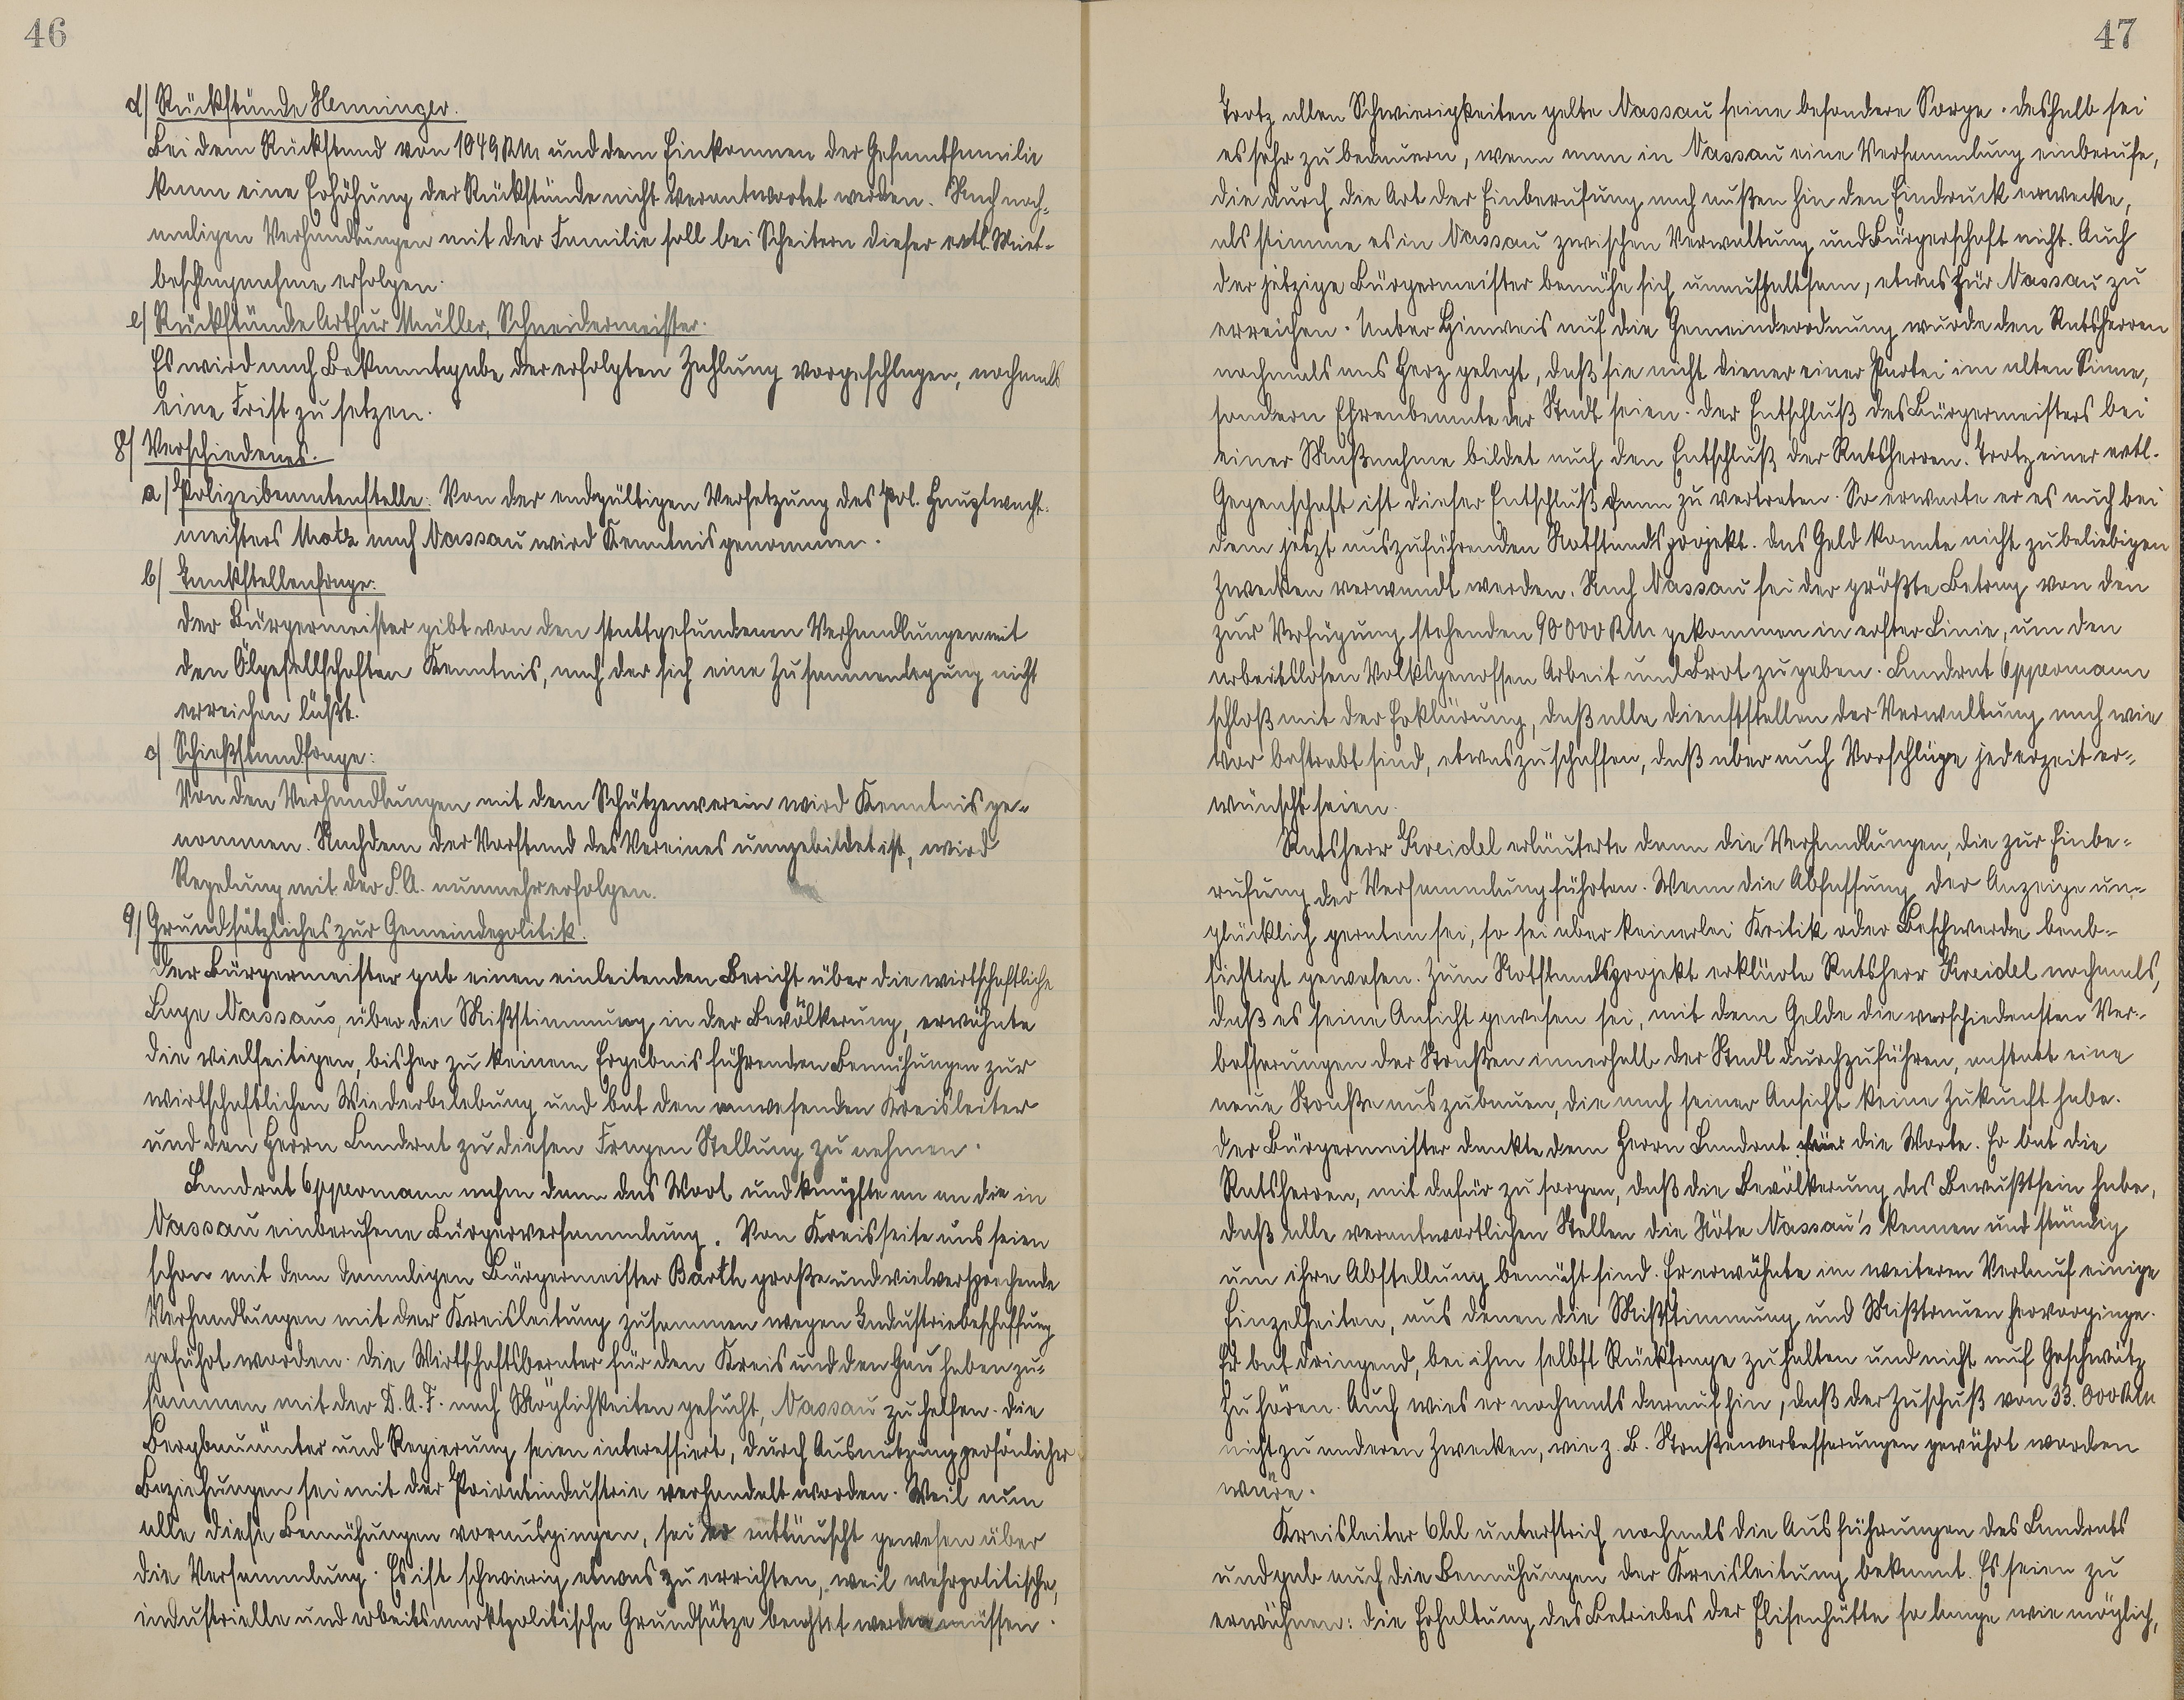 46
d) Rückstände Henninger.
Bei dem Rückstand von 1049 RM und dem Einkommen der Gesamtfamilie
kann eine Erhöhung der Rückstände nicht verantwortet werden. Nach noch-
maligen Verhandlungen mit der Familie soll bei Scheitern dieser evtl. Miet-
beschlagnahme erfolgen.
e) Rückstände Arthur Müller, Schneidermeister.
Es wird nach Bekanntgabe der erfolgten Zahlung vorgeschlagen, nochmals
eine Frist zu setzen.
8) Verschiedenes.
a) Polizeibeamtenstelle: Von der endgültigen Versetzung des Pol. Hauptwacht-
meisters Motz nach Nassau wird Kenntnis genommen.
b) Tankstellenfrage:
Der Bürgermeister gibt von den stattgefundenen Verhandlungen mit
den Ölgesellschaften Kenntnis, nach der sich eine Zusammenlegung nicht
erreichen läßt.
c) Schießstandfrage:
Von den Verhandlungen mit dem Schützenverein wird Kenntnis ge-
nommen. Nachdem der Vorstand des Vereines umgebildet ist, wird
Regelung mit der S.A. nunmehr erfolgen.
9) Grundsätzliches zur Gemeindepolitik.
Der Bürgermeister gab einen einleitenden Bericht über die wirtschaftliche
Lage Nassaus, über die Mißstimmung in der Bevölkerung, erwähnte
die vielseitigen, bisher zu keinem Ergebnis führenden Bemühungen zur
wirtschaftlichen Wiederbelebung und bat den anwesenden Kreisleiter
und den Herrn Landrat zu diesen Fragen Stellung zu nehmen.
Landrat Oppermann nahm dann das Wort und knüpfte an an die in
Nassau einberufene Bürgerversammlung. Von Kreisseite aus seien
schon mit dem damaligen Bürgermeister Barth große und vielversprechende
Verhandlungen mit der Kreisleitung zusammen wegen Industriebeschaffung
geführt worden. Die Wirtschaftsberater für den Kreis und den Gau haben zu-
sammen mit der D.A.F. nach Möglichkeiten gesucht, Nassau zu helfen. Die
Bergbauämter und Regierung seien interessiert, durch Ausnutzung persönlicher
Beziehungen sei mit der Privatindustrie verhandelt worden. Weil nun
alle diese Bemühungen vorausgingen, sei er enttäuscht gewesen über
die Versammlung. Es ist schwierig etwas zu errichten, weil wehrpolitische,
industrielle und arbeitsmarktpolitische Grundsätze beachtet werden müssen.
47
Trotz allen Schwierigkeiten gelte Nassau seine besondere Sorge. Deshalb sei
es sehr zu bedauern, wenn man in Nassau eine Versammlung einberufe,
die durch die Art der Einberufung nach außen hin den Eindruck erwecke,
als stimme es in Nassau zwischen Verwaltung und Bürgerschaft nicht. Auch
der jetzige Bürgermeister bemühe sich unaufhaltsam, etwas für Nassau zu
erreichen. Unter Hinweis auf die Gemeindeordnung wurde den Ratsherren
nochmals ans Herz gelegt, daß sie nicht Diener einer Partei im alten Sinne,
sondern Ehrenbeamte der Stadt seien. Der Entschluß des Bürgermeisters bei
einer Maßnahme bildet auch den Entschluß der Ratsherren. Trotz einer evtl.
Gegenschaft ist dieser Entschluß dann zu vertreten. So erwarte er es auch bei
dem jetzt auszuführenden Notstandsprojekt. Das Geld konnte nicht zu beliebigen
Zwecken verwandt werden. Nach Nassau sei der größte Betrag von den
zur Verfügung stehenden 90 000 RM gekommen in erster Linie, um den
arbeitslosen Volksgenossen Arbeit und Brot zu geben. Landrat Oppermann
schloß mit der Erklärung, daß alle Dienststellen der Verwaltung nach wie
vor bestrebt sind, etwas zu schaffen, daß aber auch Vorschläge jederzeit er-
wünscht seien.
Ratsherr Kreidel erläuterte dann die Verhandlungen, die zur Einbe-
rufung der Versammlung führten. Wenn die Abfassung der Anzeige un-
glücklich geraten sei, so sei aber keinerlei Kritik oder Beschwerde beab-
sichtigt gewesen. Zum Notstandsprojekt erklärte Ratsherr Kreidel nochmals,
daß es seine Ansicht gewesen sei, mit dem Gelde die verschiedensten Ver-
besserungen der Straßen innerhalb der Stadt durchzuführen, anstatt eine
neue Straße auszubauen, die nach seiner Ansicht keine Zukunft habe.
Der Bürgermeister dankte dem Herrn Landrat für die Worte. Er bat die
Ratsherren, mit dafür zu sorgen, daß die Bevölkerung das Bewußtsein habe,
daß alle verantwortlichen Stellen die Nöte Nassau's kennen und ständig
um ihre Abstellung bemüht sind. Er erwähnte im weiteren Verlauf einige
Einzelheiten, aus denen die Mißstimmung und Mißtrauen hervorginge.
Er bat dringend, bei ihm selbst Rückfrage zu halten und nicht auf Geschwätz
zu hören. Auch wies er nochmals darauf hin, daß der Zuschuß von 33.000 RM
nicht zu anderen Zwecken, wie z. B. Straßenverbesserungen gewährt worden
wäre.
Kreisleiter Ohl unterstrich nochmals die Ausführungen des Landrats
und gab auch die Bemühungen der Kreisleitung bekannt. Es seien zu
erwähnen: Die Erhaltung des Betriebes der Elisenhütte so lange wie möglich,